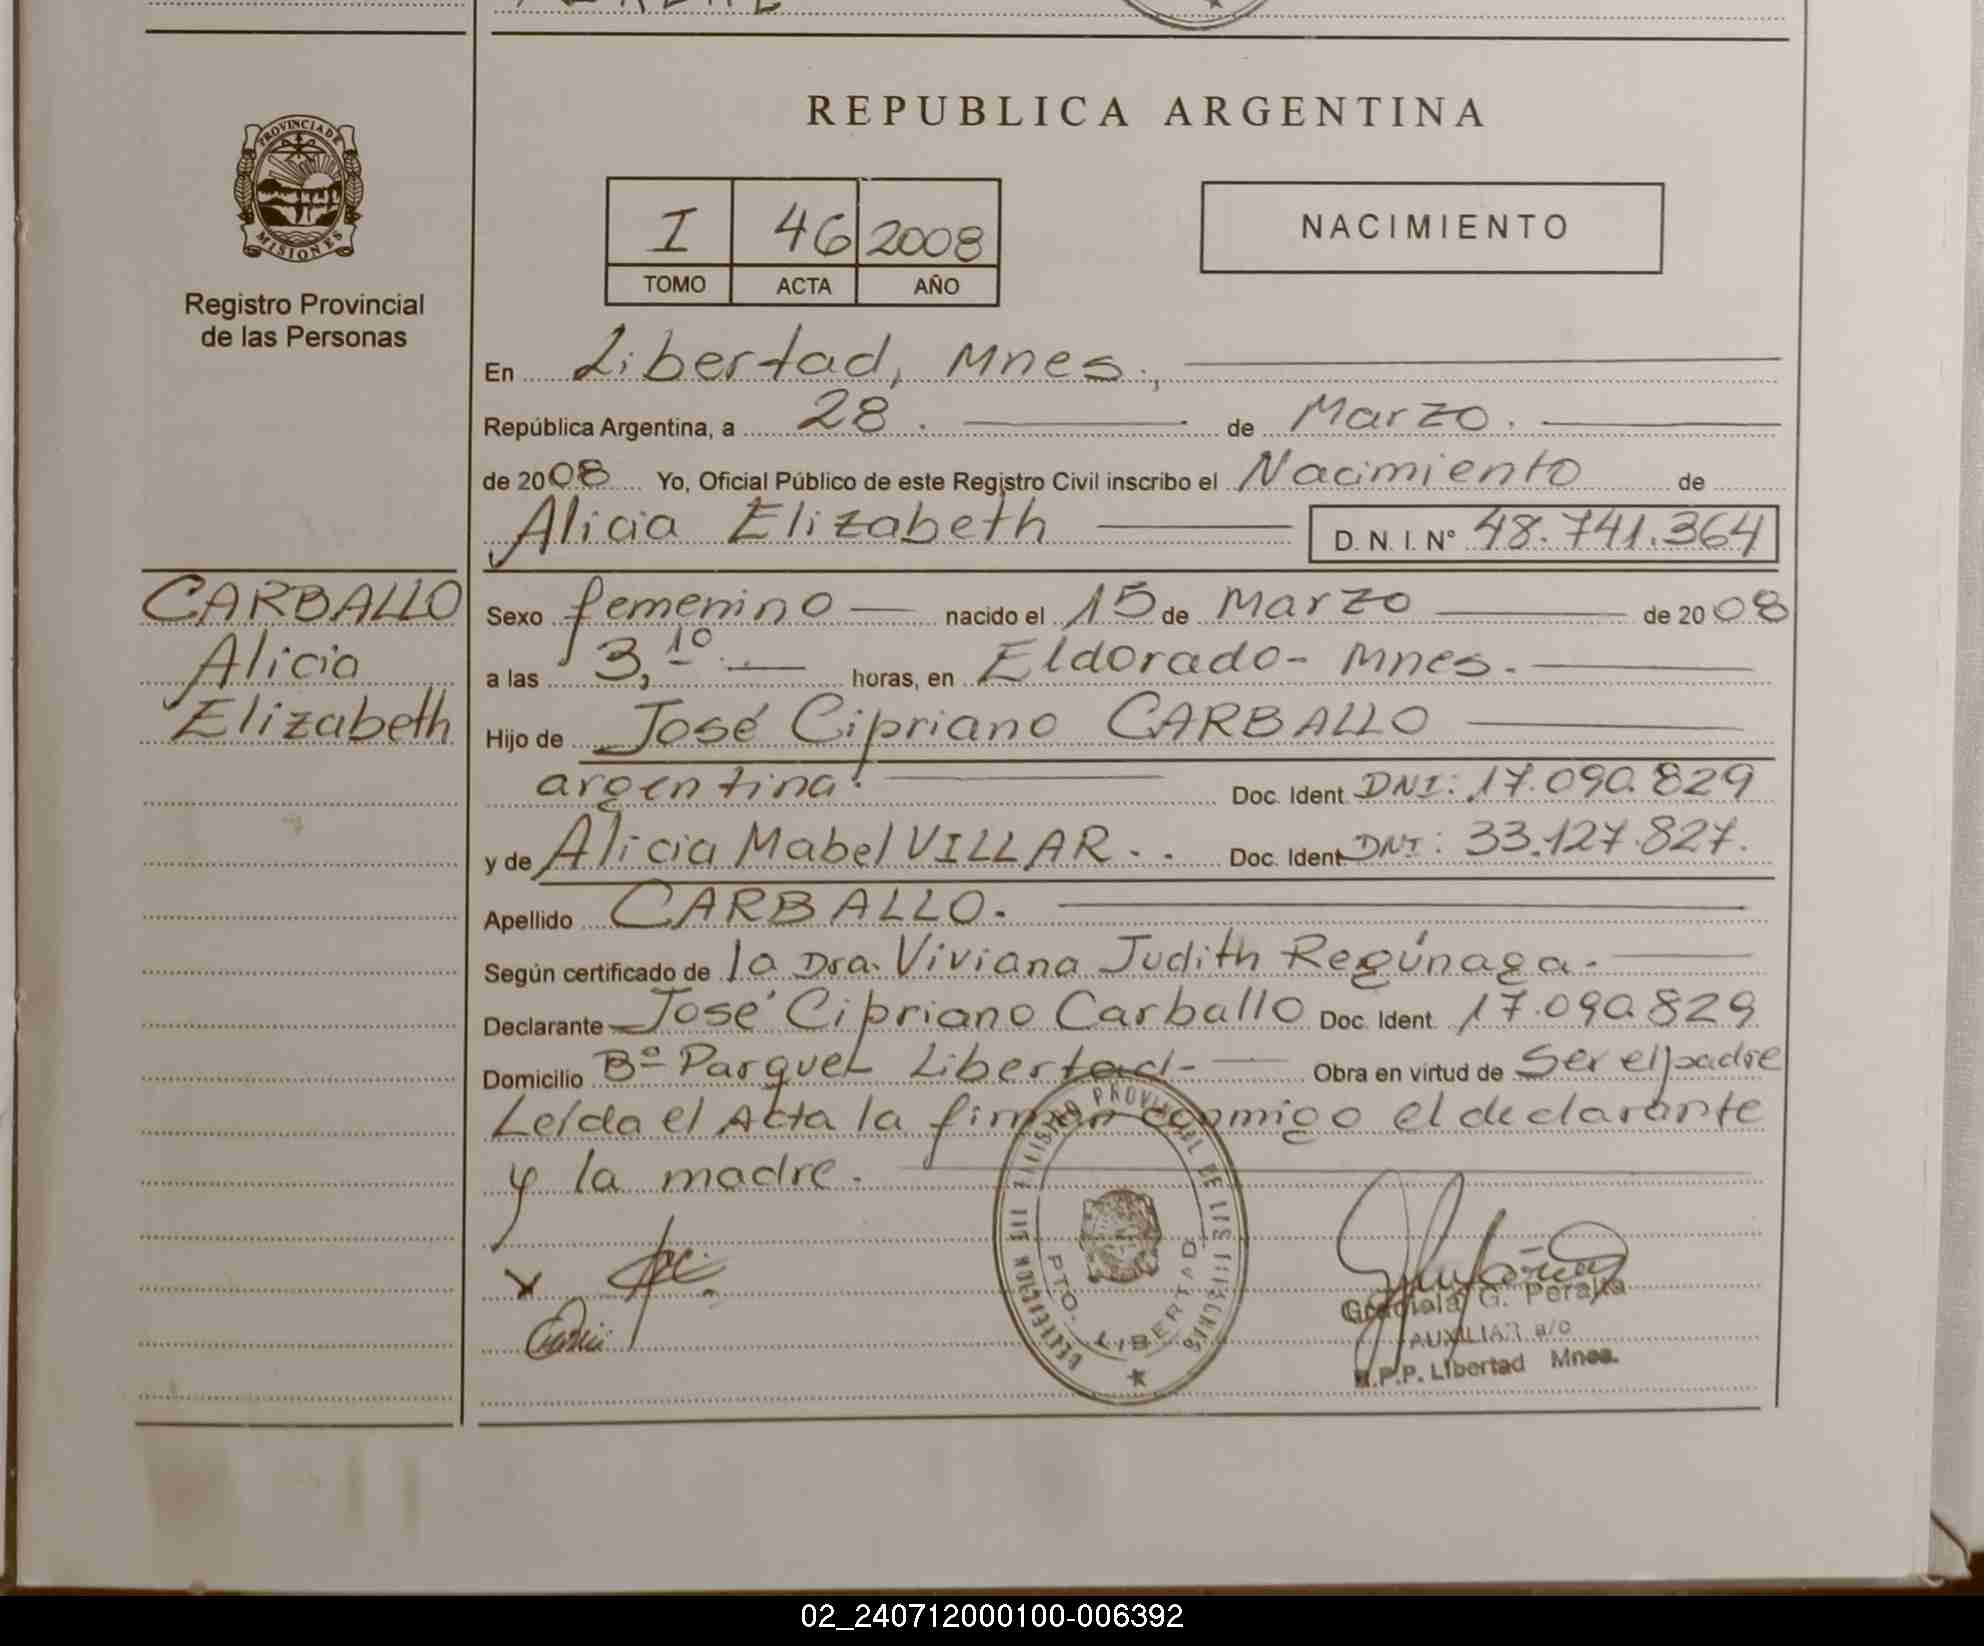 PROVINCIA DE
MISIONES
Registro Provincial
de las Personas
REPUBLICA ARGENTINA
I 46 2008
TOMO ACTA AÑO
NACIMIENTO
En Libertad, Mnes.,
República Argentina, a 28. de Marzo.
de 2008 Yo, Oficial Público de este Registro Civil inscribo el Nacimiento de
Alicia Elizabeth D. N. I. N° 48.741.364
CARBALLO
Alicia
Elizabeth
Sexo femenino nacido el 15 de Marzo de 2008
a las 3,10 horas, en Eldorado - Mnes.
Hijo de José Cipriano CARBALLO
argentina. Doc. Ident. DNI: 17.090.829
y de Alicia Mabel VILLAR. . Doc. Ident DNI: 33.127.827.
Apellido CARBALLO.
Según certificado de la Dra. Viviana Judith Regúnaga.
Declarante José Cipriano Carballo Doc. Ident. 17.090.829
Domicilio Bº Parquel Libertad - Obra en virtud de Ser el padre
Leída el Acta la firman conmigo el declarante
y la madre.
PTO. LIBERTAD
Graciela G. Peralta
AUXILIAR a/c
R.P.P. Libertad Mnes.
02_240712000100-006392